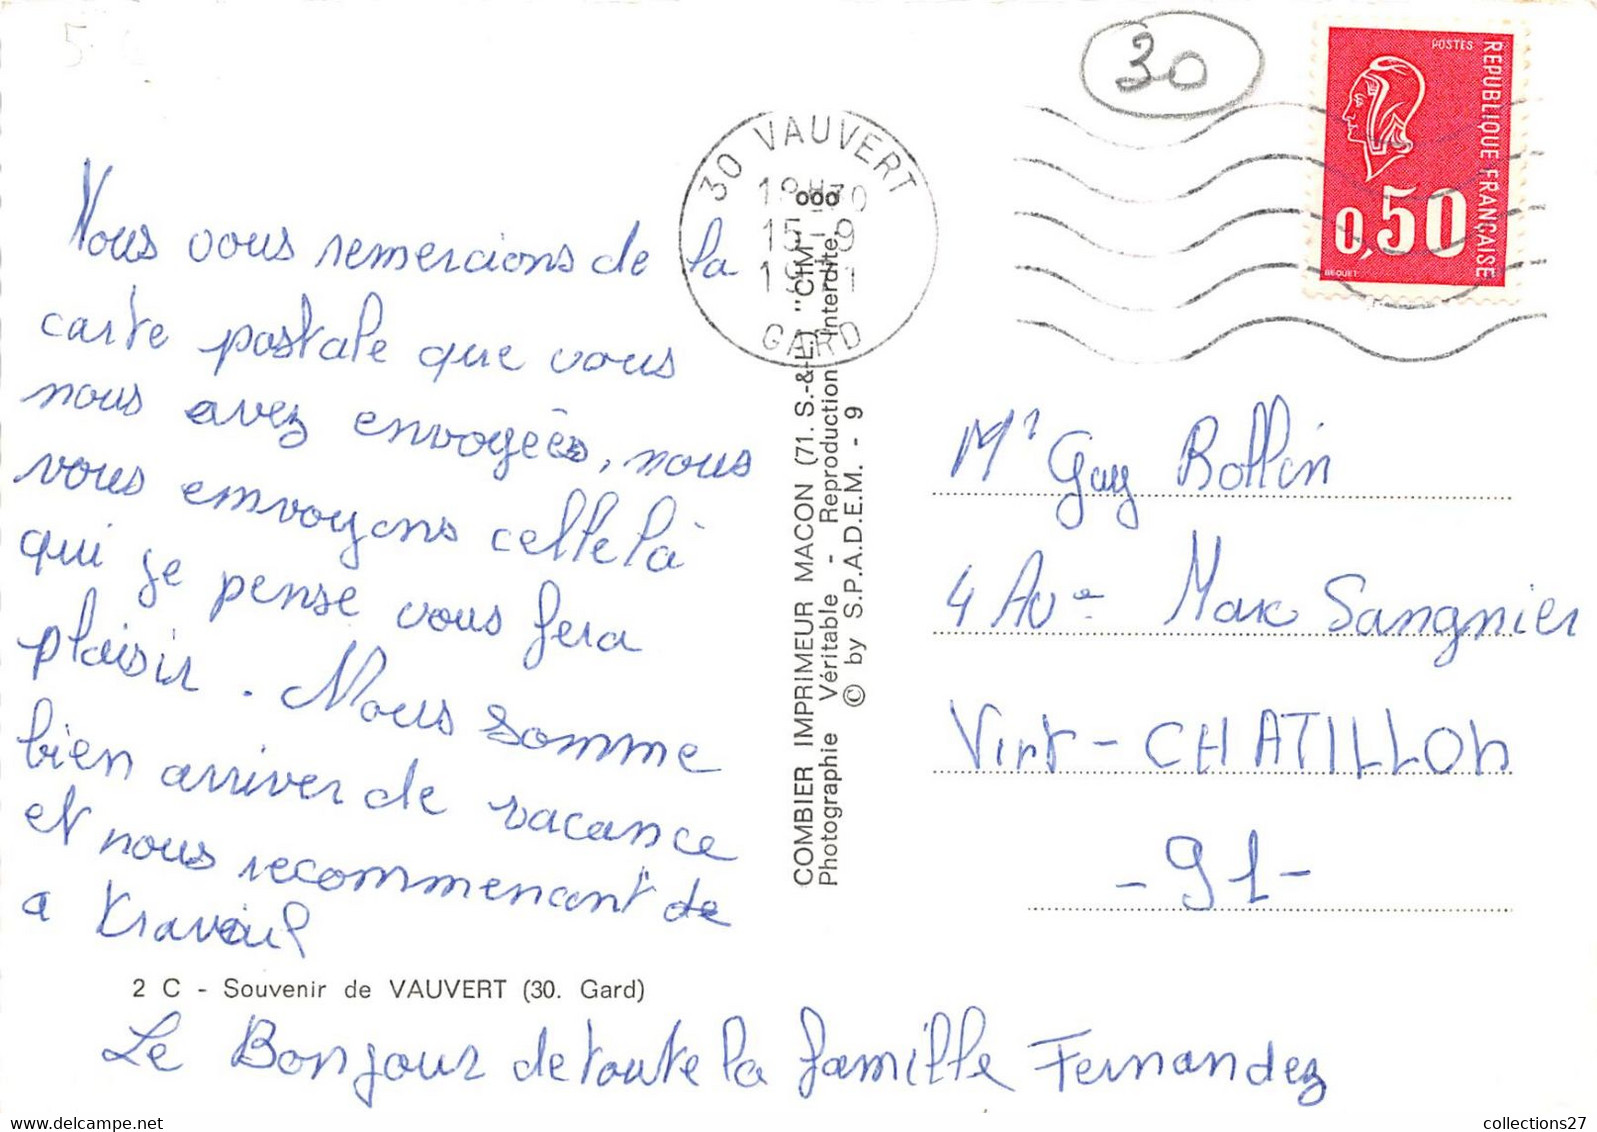 30
30 VAUVERT
15-9
GARD
POSTES
REPUBLIQUE FRANÇAISE
0,50
BEQUET
Nous vous remercions de la
carte postale que vous
nous avez envoyées, nous
vous envoyons celle là
qui je pense vous fera
plaisir. Nous somme
bien arriver de vacance
et nous recommencont de
a travail
2 C - Souvenir de VAUVERT (30. Gard)
Le Bonjour de toute la famille Fernandez
COMBIER IMPRIMEUR MACON (71. S.-&-L.) "CIM"
Photographie Véritable - Reproduction Interdite
© by S.P.A.D.E.M. - 9
Mr Guy Bollin
4 Ave Marc Sangnier
Virt - CHATILLON
- 91 -
collections27